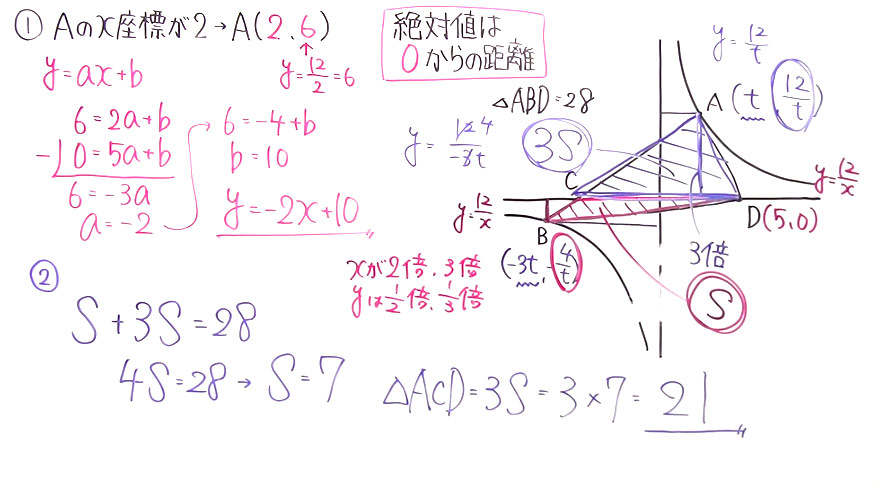 ① Aのx座標が2→A(2、6)
y=12/2=6
y=ax+b
6=2a+b
-) 0=5a+b
6=-3a
a=-2
6=-4+b
b=10
y=-2x+10
絶対値は
0からの距離
△ABD=28
3S
y=12/t
A(t 12/t)
y=12 4/-3t
C
y=12/x
y=12/x
B
D(5,0)
(-3t, -4/t)
3倍
S
xが2倍、3倍
yは1/2倍、1/3倍
②
S+3S=28
4S=28→S=7
△ACD=3S=3×7=21